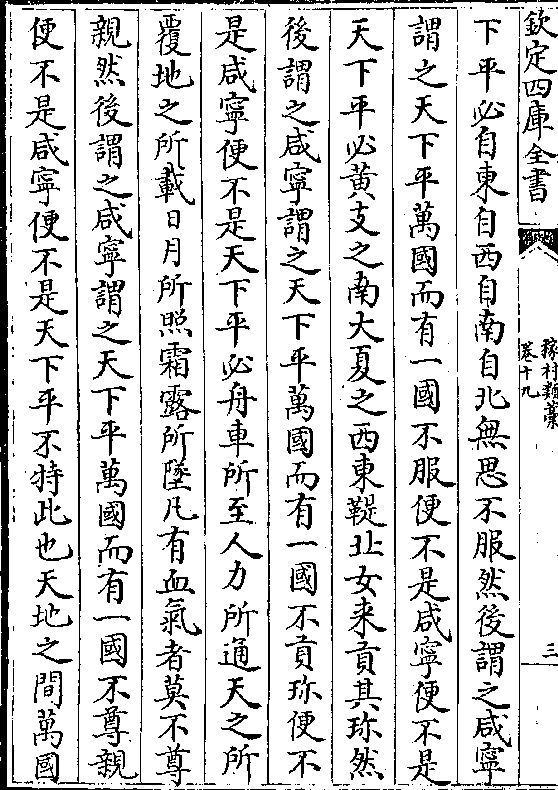 欽定四庫全書
稼村類藁
卷十九
三
下平必自東自西自南自北無思不服然後謂之咸寧
謂之天下平萬國而有一國不服便不是咸寧便不是
天下平必黄支之南大夏之西東鞮北女来貢其珎然
後謂之咸寧謂之天下平萬國而有一國不貢珎便不
是咸寧便不是天下平必舟車所至人力所通天之所
覆地之所載日月所照霜露所墜凡有血氣者莫不尊
親然後謂之咸寧謂之天下平萬國而有一國不尊親
便不是咸寧便不是天下平不特此也天地之間萬國